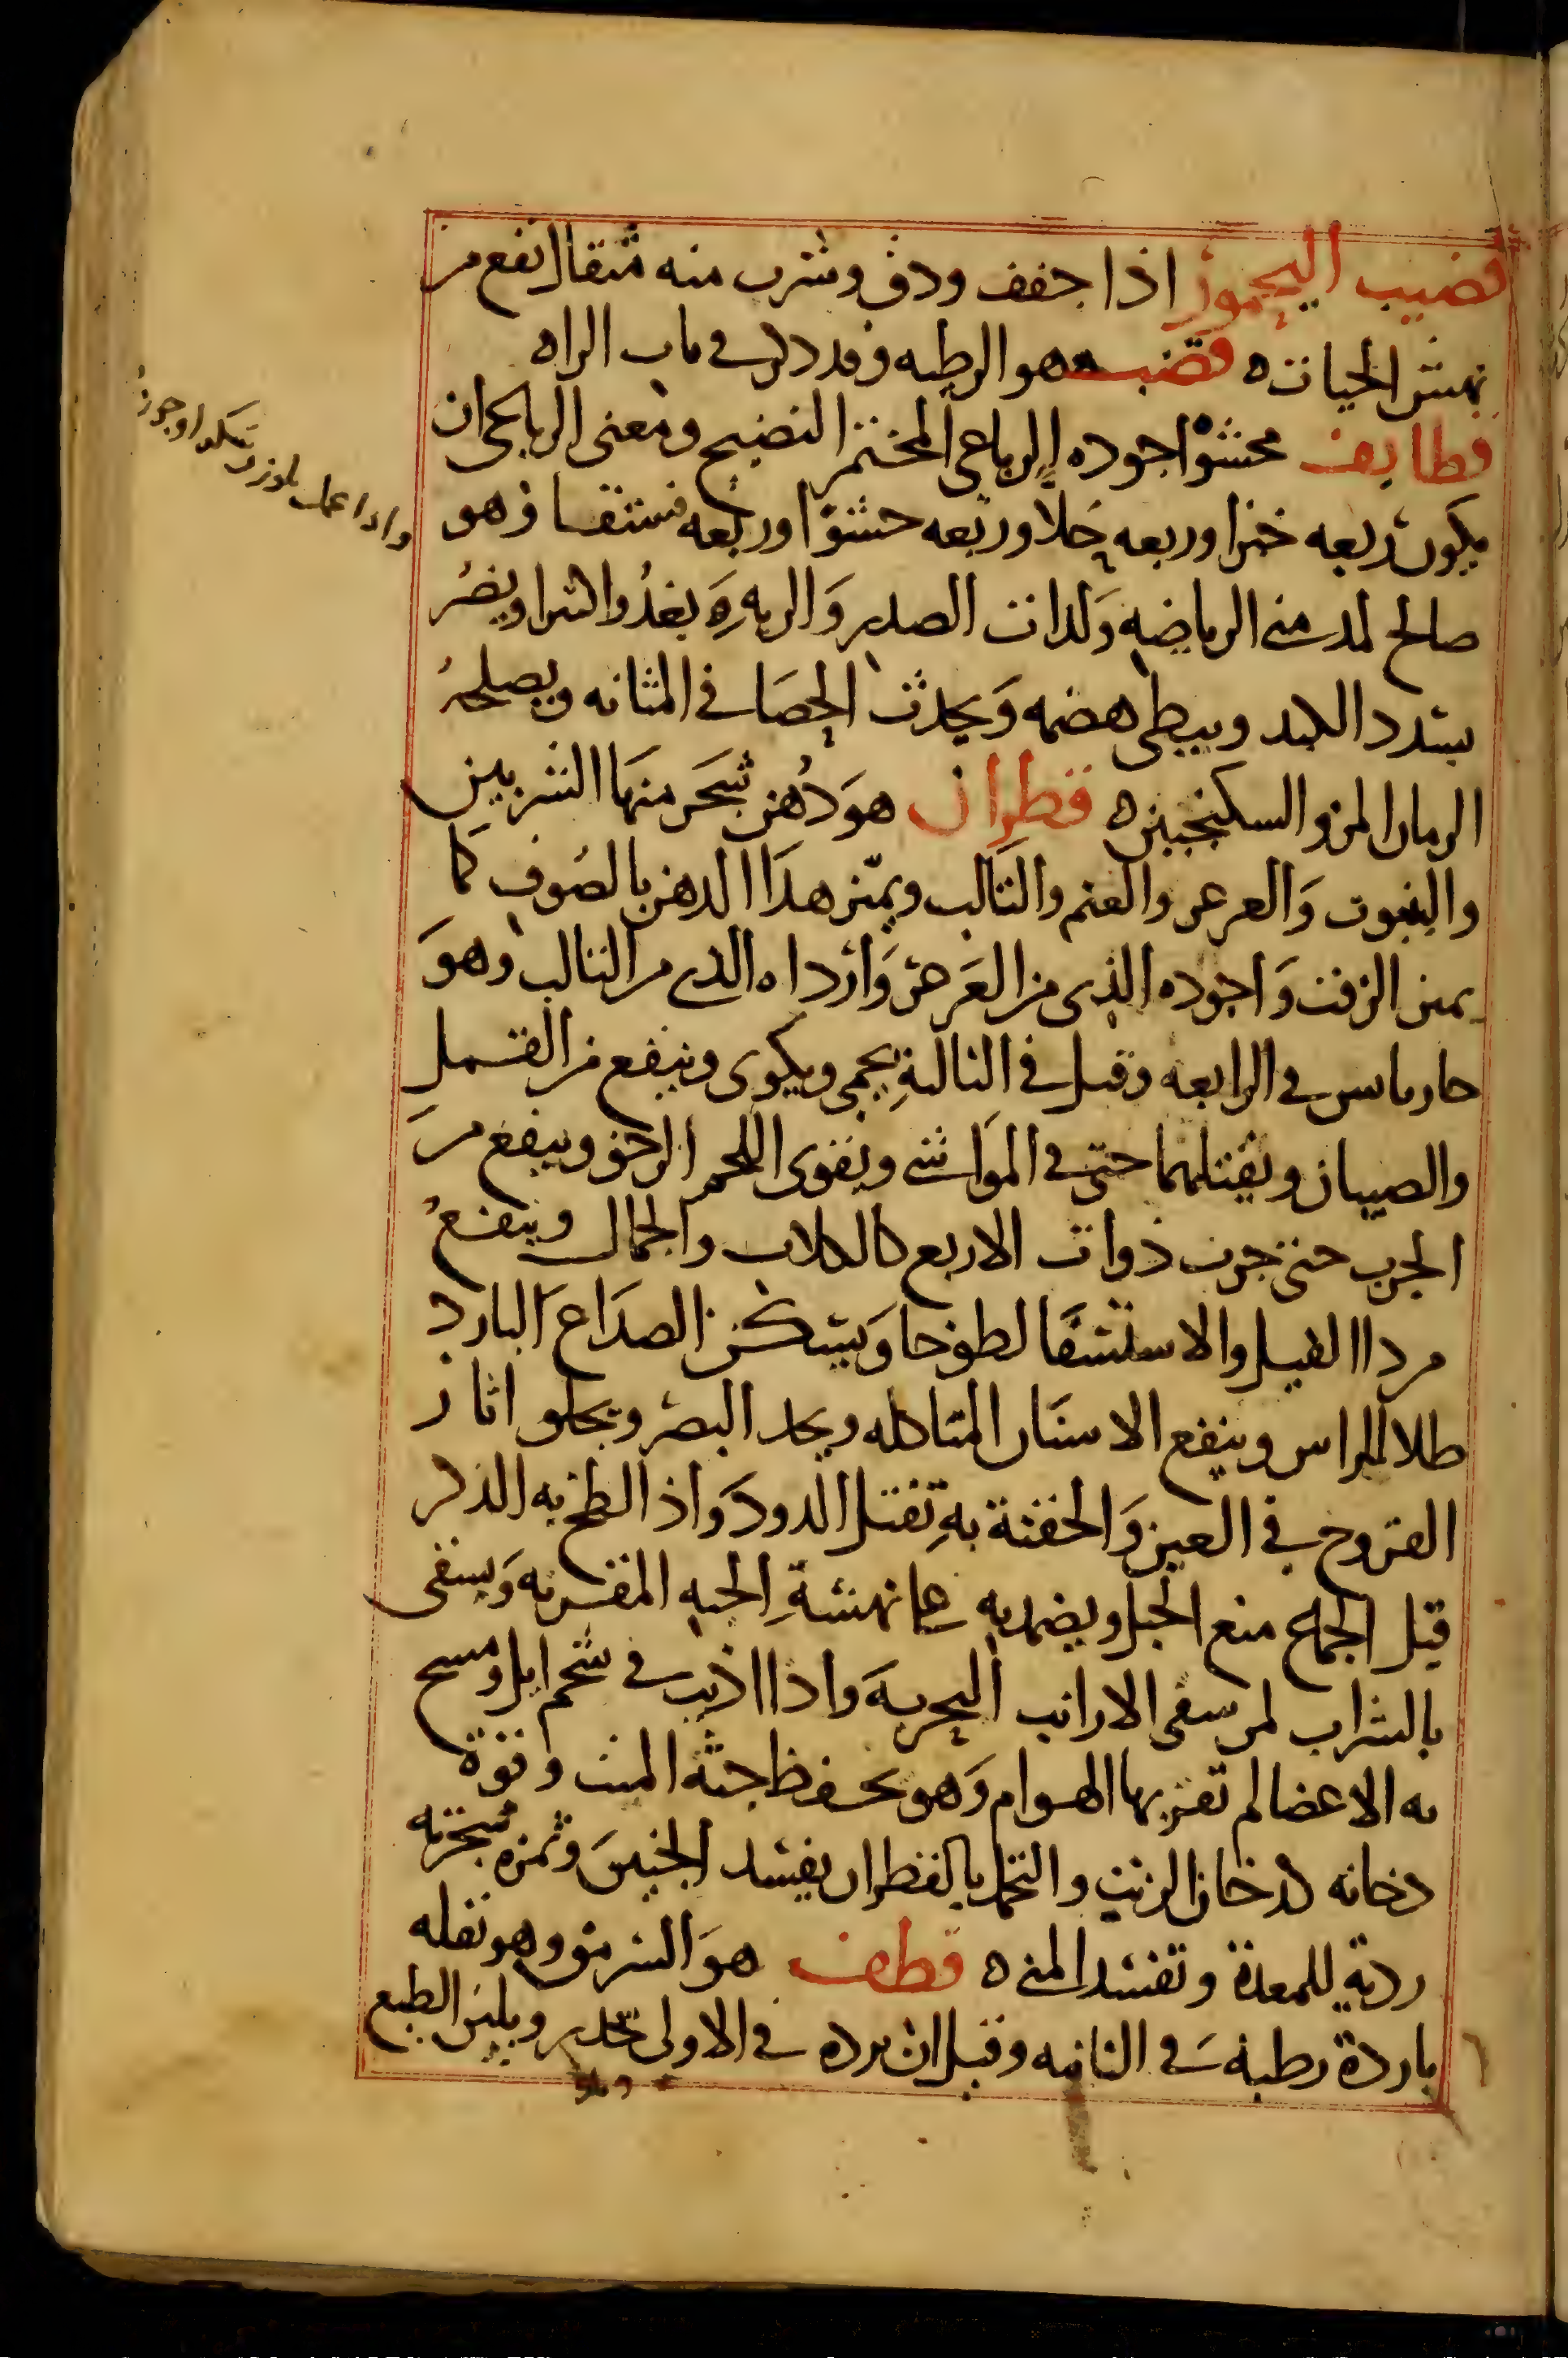 قضيب اليحمور اذا جفف ودق وشرب منه مثقال نفع من
نهش الحيات ه قضب هو الرطبه وقد ذكر في باب الراه
قطايف محشوا اجوده الرباعي المختمر النضيج ومعنى الرباعي ان
يكون ربعه خبزا وربعه حلاوربعه حشوا وربعه فستقا وهو
صالح لمدمني الرياضه ولذات الصدر والريه يغذوا كثيرا ويضر
بسدد الكبد ويبطي هضمه ويحدث الحصا في المثانه ويصلحه
الرمان المز والسكنجبين ه قطران هو دهن شجر منها الشربين
والينبوت والعرعر والعتم والتالب ويميز هذا الدهن بالصوف كما
يميز الزفت واجوده الذي من العرعر واردا ه الذي من التالب وهو
حار يابس في الرابعه وقيل في الثالثة يحمي ويكوي وينفع من القمل
والصيبان ويقتلهما حتى في المواشي ويقوي اللحم الرخو وينفع من
الجرب حتى جرب ذوات الاربع كالكلاب والجمال وينفع
من دا الفيل والاستسقا لطوخا ويسكن الصداع البارد
طلا للراس وينفع الاسنان المتاكله ويحد البصر ويجلو اثار
القروح في العين والحقنة به تقتل الدود واذا لطخ به الذكر
قبل الجماع منع الحبل ويضمد به على نهشة الحيه المقرنه ويسقى
بالشراب لمن سقي الارانب البحريه واذا اذيب في شحم ايل ومسح
به الاعضا لم تقربها الهوام وهو يحفظ جثة الميت وقوة
دخانه كدخان الزيت والتحمل بالقطران يفسد الجنين وثمره شجرته
ردية للمعدة وتفسد المني ه قطف هو السرمق وهو بقله
باردة رطبة في الثانيه وقيل ان برده في الاولى يخدر ويلين الطبع
واذا عمل بلوز وسكر اوجوز